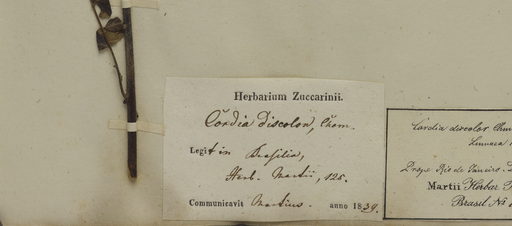 Herbarium Zuccarinii.
Cordia discolor, Cham.
Legit in Brasilia,
Herb. Martii, 125.
Communicavit Martius. anno 1839.
Cordia discolor Cham
Prope Rio de Janeiro.
Martii Herbar. F
Brasil. No